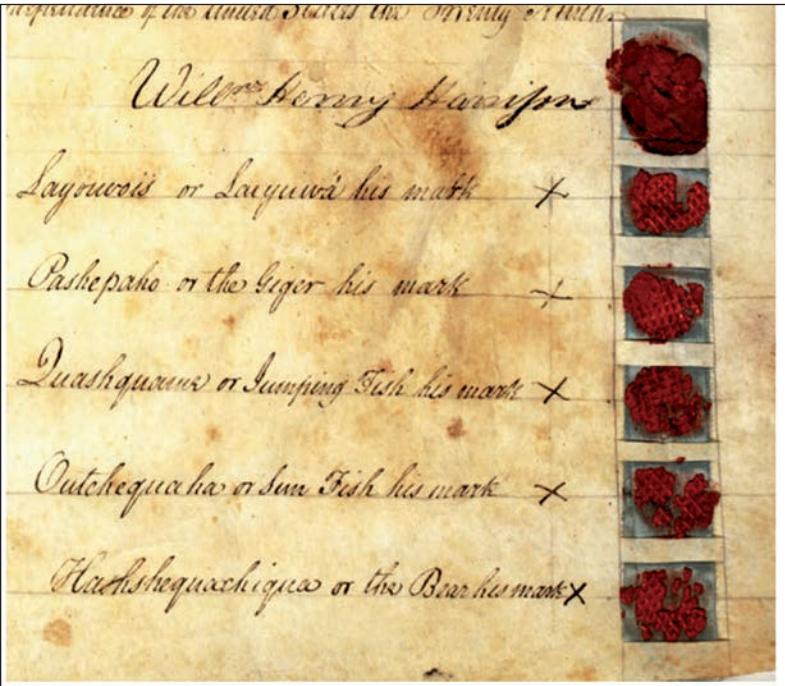 of the United States the Twenty Ninth
Willm Henry Harrison
Layouvois or Laiyuwà his mark X
Pashepaho or the Giger his mark X
Quashquame or Jumping Fish his mark X
Outchequaha or Sun Fish his mark X
Hashshequaxhiqua or the Bear his mark X